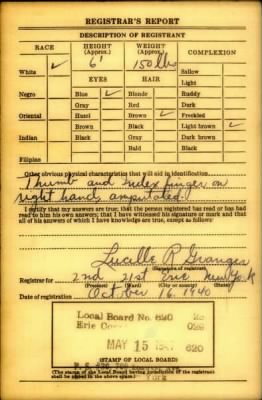 REGISTRAR'S REPORT
DESCRIPTION OF REGISTRANT
RACE HEIGHT (Approx.) WEIGHT (Approx.) COMPLEXION
White ✓ 6' 150 lbs Sallow
Light
EYES HAIR
Negro Blue ✓ Blonde Ruddy
Gray Red Dark
Oriental Hazel Brown ✓ Freckled
Brown Black Light brown ✓
Indian Black Gray Dark brown
Bald Black
Filipino
Other obvious physical characteristics that will aid in identification
Thumb and index finger on
right hand amputated
I certify that my answers are true; that the person registered has read or has had
read to him his own answers; that I have witnessed his signature or mark and that
all of his answers of which I have knowledge are true, except as follows:
Lucille R. Granger
(Signature of registrar)
Registrar for 2nd 21st Erie New York
(Precinct) (Ward) (City or county) (State)
Date of registration October 16, 1940
Local Board No. 620
Erie 029
MAY 15 620
(STAMP OF LOCAL BOARD)
(The stamp of the Local Board having jurisdiction of the registrant
shall be placed in the above space.)